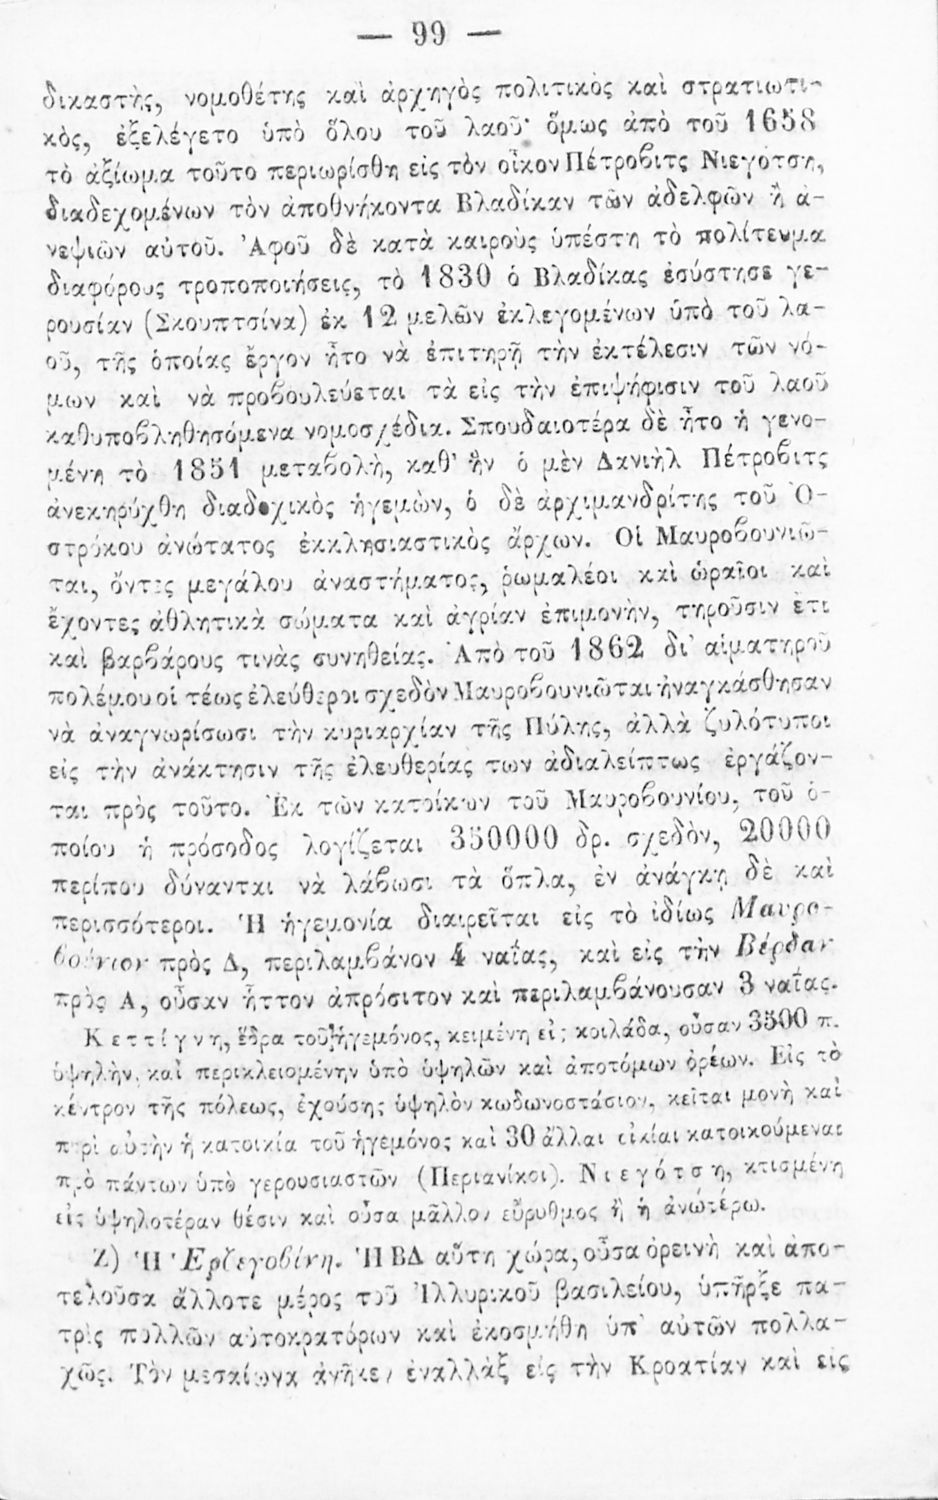 — 99 —
δικαστὴς, νομοθέτης καὶ ἀρχηγὸς πολιτικὸς καὶ στρατιωτι-
κὸς, ἐξελέγετο ὑπὸ ὅλου τοῦ λαοῦ· ὅμως ἀπὸ τοῦ 1658
τὸ ἀξίωμα τοῦτο περιωρίσθη εἰς τὸν οἶκον Πέτροβιτς Νιεγότση,
διαδεχομένων τὸν ἀποθνήκοντα Βλαδίκαν τῶν ἀδελφῶν ἢ ἀ-
νεψιῶν αὐτοῦ. Ἀφοῦ δὲ κατὰ καιροὺς ὑπέστη τὸ πολίτευμα
διαφόρους τροποποιήσεις, τὸ 1830 ὁ Βλαδίκας ἐσύστησε γε-
ρουσίαν (Σκουπτσίνα) ἐκ 12 μελῶν ἐκλεγομένων ὑπὸ τοῦ λα-
οῦ, τῆς ὁποίας ἔργον ἦτο νὰ ἐπιτηρῇ τὴν ἐκτέλεσιν τῶν νό-
μων καὶ νὰ προβουλεύεται τὰ εἰς τὴν ἐπιψήφισιν τοῦ λαοῦ
καθυποβληθησόμενα νομοσχέδια. Σπουδαιοτέρα δὲ ἦτο ἡ γενο-
μένη τὸ 1851 μεταβολὴ, καθ' ἣν ὁ μὲν Δανιὴλ Πέτροβιτς
ἀνεκηρύχθη διαδοχικὸς ἡγεμὼν, ὁ δὲ ἀρχιμανδρίτης τοῦ Ὀ-
στρόκου ἀνώτατος ἐκκλησιαστικὸς ἄρχων. Οἱ Μαυροβουνιῶ-
ται, ὄντες μεγάλου ἀναστήματος, ῥωμαλέοι καὶ ὡραῖοι καὶ
ἔχοντες ἀθλητικὰ σώματα καὶ ἀγρίαν ἐπιμονὴν, τηροῦσιν ἔτι
καὶ βαρβάρους τινὰς συνηθείας. Ἀπὸ τοῦ 1862 δι' αἱματηροῦ
πολέμου οἱ τέως ἐλεύθεροι σχεδὸν Μαυροβουνιῶται ἠναγκάσθησαν
νὰ ἀναγνωρίσωσι τὴν κυριαρχίαν τῆς Πύλης, ἀλλὰ ζυλότυποι
εἰς τὴν ἀνάκτησιν τῆς ἐλευθερίας των ἀδιαλείπτως ἐργάζον-
ται πρὸς τοῦτο. Ἐκ τῶν κατοίκων τοῦ Μαυροβουνίου, τοῦ ὁ-
ποίου ἡ πρόσοδος λογίζεται 350000 δρ. σχεδὸν, 20000
περίπου δύνανται νὰ λάβωσι τὰ ὅπλα, ἐν ἀνάγκῃ δὲ καὶ
περισσότεροι. Ἡ ἡγεμονία διαιρεῖται εἰς τὸ ἰδίως Μαυρο-
βούνιον πρὸς Δ, περιλαμβάνον 4 ναΐας, καὶ εἰς τὴν Βέρδαν
πρὸς Α, οὖσαν ἧττον ἀπρόσιτον καὶ περιλαμβάνουσαν 3 ναΐας.
Κεττίγνη, ἕδρα τοῦ ἡγεμόνος, κειμένη εἰς κοιλάδα, οὖσαν 3500 π.
ὑψηλὴν, καὶ περικλειομένην ὑπὸ ὑψηλῶν καὶ ἀποτόμων ὀρέων. Εἰς τὸ
κέντρον τῆς πόλεως, ἐχούσης ὑψηλὸν κωδωνοστάσιον, κεῖται μονὴ καὶ
περὶ αὐτὴν ἡ κατοικία τοῦ ἡγεμόνος καὶ 30 ἄλλαι οἰκίαι κατοικούμεναι
πρὸ πάντων ὑπὸ γερουσιαστῶν (Περιανίκοι). Νιεγότση, κτισμένη
εἰς ὑψηλοτέραν θέσιν καὶ οὖσα μᾶλλον εὔρυθμος ἢ ἡ ἀνωτέρω.
Ζ) Ἡ Ἐρζεγοβίνη. Ἡ ΒΔ αὕτη χώρα, οὖσα ὀρεινὴ καὶ ἀπο-
τελοῦσα ἄλλοτε μέρος τοῦ Ἰλλυρικοῦ βασιλείου, ὑπῆρξε πα-
τρὶς πολλῶν αὐτοκρατόρων καὶ ἐκοσμήθη ὑπ' αὐτῶν πολλα-
χῶς. Τὸν μεσαίωνα ἀνῆκεν ἐναλλὰξ εἰς τὴν Κροατίαν καὶ εἰς